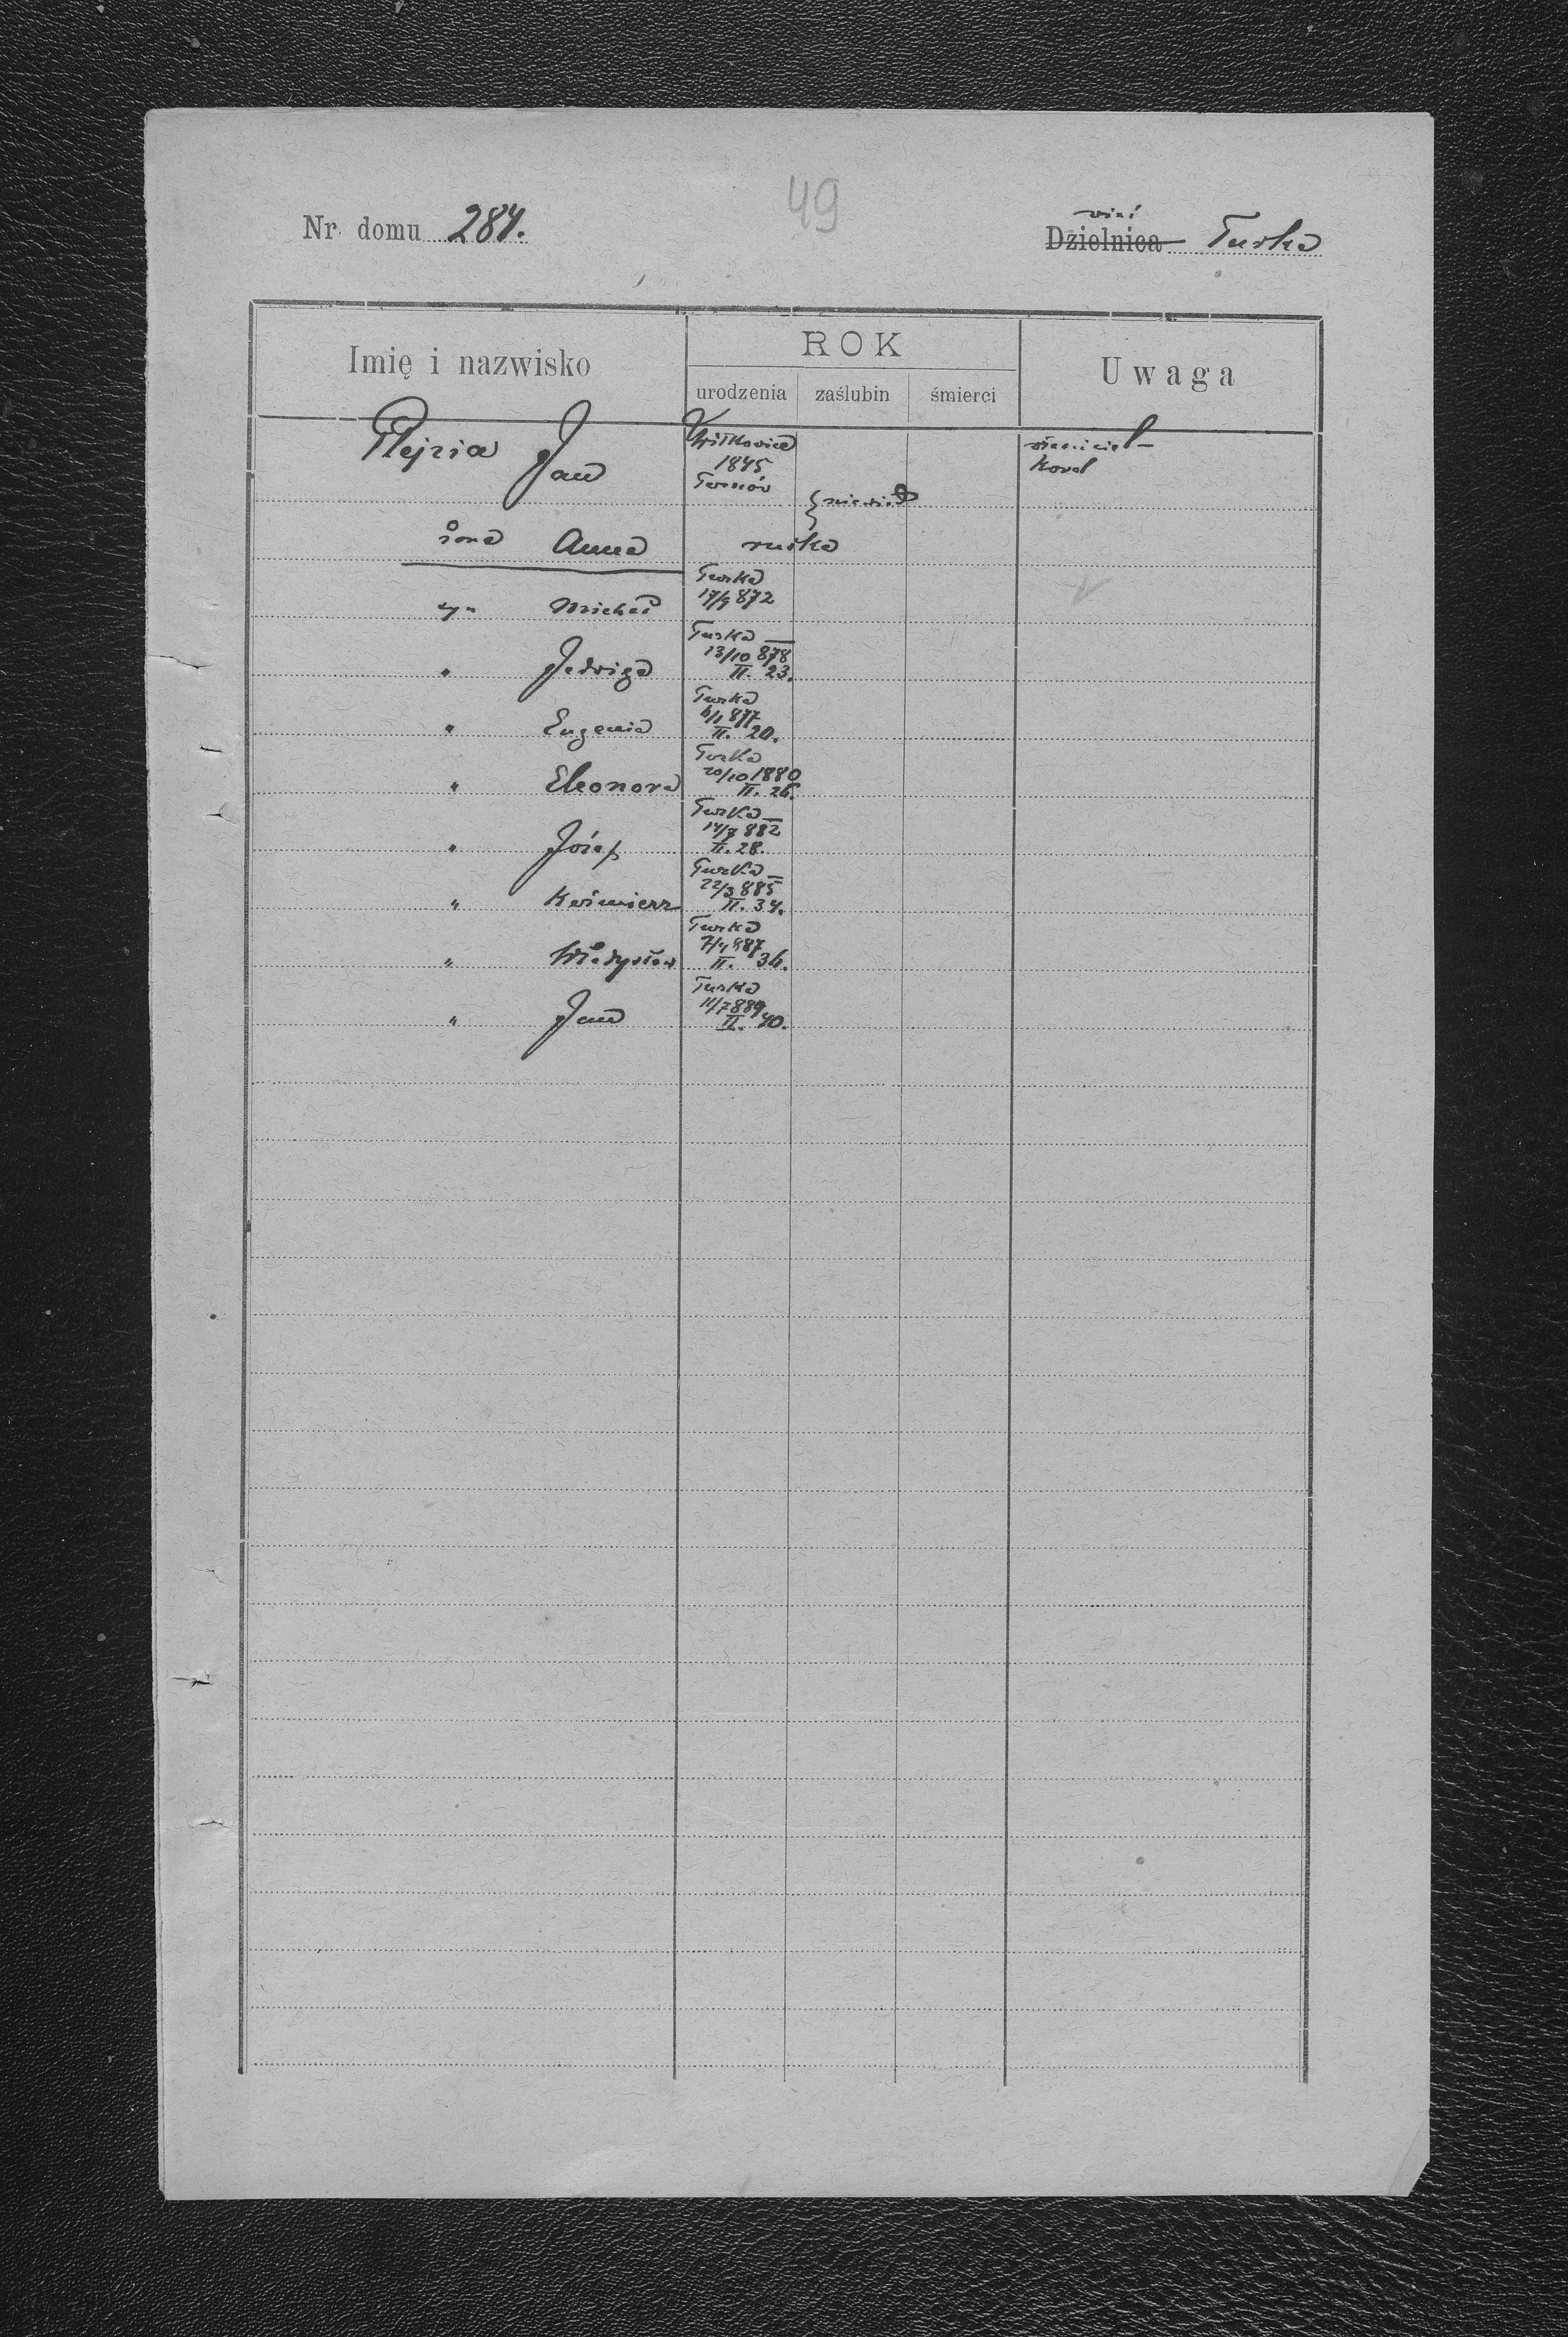 49
Nr. domu 284.
wieś
Dzielnica Turka
Imię i nazwisko
ROK
urodzenia zaślubin śmierci
Uwaga
Plejzia Jan
Witkowice
1845
Tarnów
właściciel
kowal
żona Anna ruska
Turka
syn Michał 17/9 872
Turka
13/10 878
" Jadwiga II. 23.
Turka
877
" Eugenia II. 20.
Turka
20/10 1880
" Eleonora II. 26.
Turka
14/7 882
" Józef II. 28.
Turka
22/3 885
" Kazimierz II. 34.
Turka
7/4 887
" Władysław II. 36.
Turka
11/7 889
" Jan II. 40.